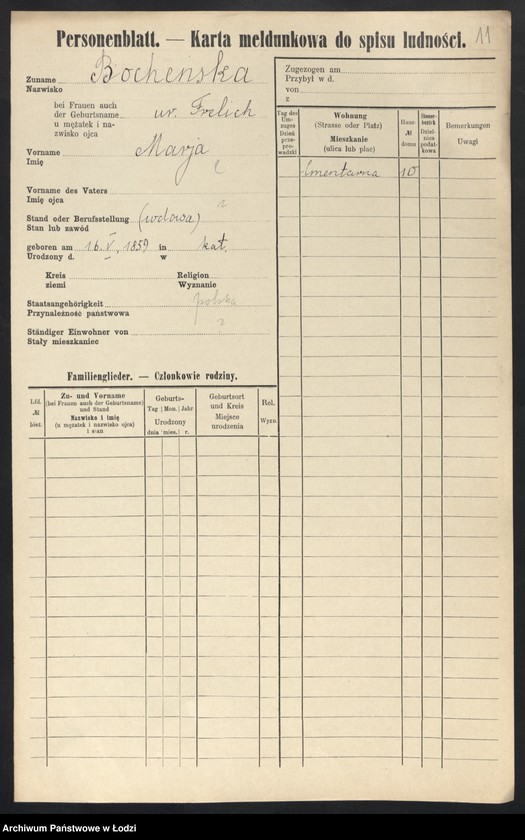 Personenblatt. — Karta meldunkowa do spisu ludności. 11
Zuname Bocheńska
Nazwisko
bei Frauen auch
der Geburtsname ur. Frelich
u mężatek i na-
zwisko ojca
Vorname Marja
Imię
Vorname des Vaters
Imię ojca
Stand oder Berufsstellung (wdowa)
Stan lub zawód
geboren am 16. V. 1859 in kat.
Urodzony d. w
Kreis Religion
ziemi Wyznanie
Staatsangehörigkeit polska
Przynależność państwowa
Ständiger Einwohner von
Stały mieszkaniec
Zugezogen am
Przybył w d.
von
z
Tag des Um-zuges Dzień prze-pro-wadzki
Wohnung
(Strasse oder Platz)
Mieszkanie
(ulica lub plac)
Haus-
№
domu
Steuer-bezirk Dziel-nica podat-kowa
Bemerkungen
Uwagi
Cmentarna 10
Familienglieder. — Członkowie rodziny.
Lfd.
№
bież.
Zu- und Vorname
(bei Frauen auch der Geburtsname)
und Stand
Nazwisko i imię
(u mężatek i nazwisko ojca)
i stan
Geburts-
Tag | Mon. | Jahr
Urodzony
dnia | mies. | r.
Geburtsort
und Kreis
Miejsce
urodzenia
Rel.
Wyzn.
Archiwum Państwowe w Łodzi